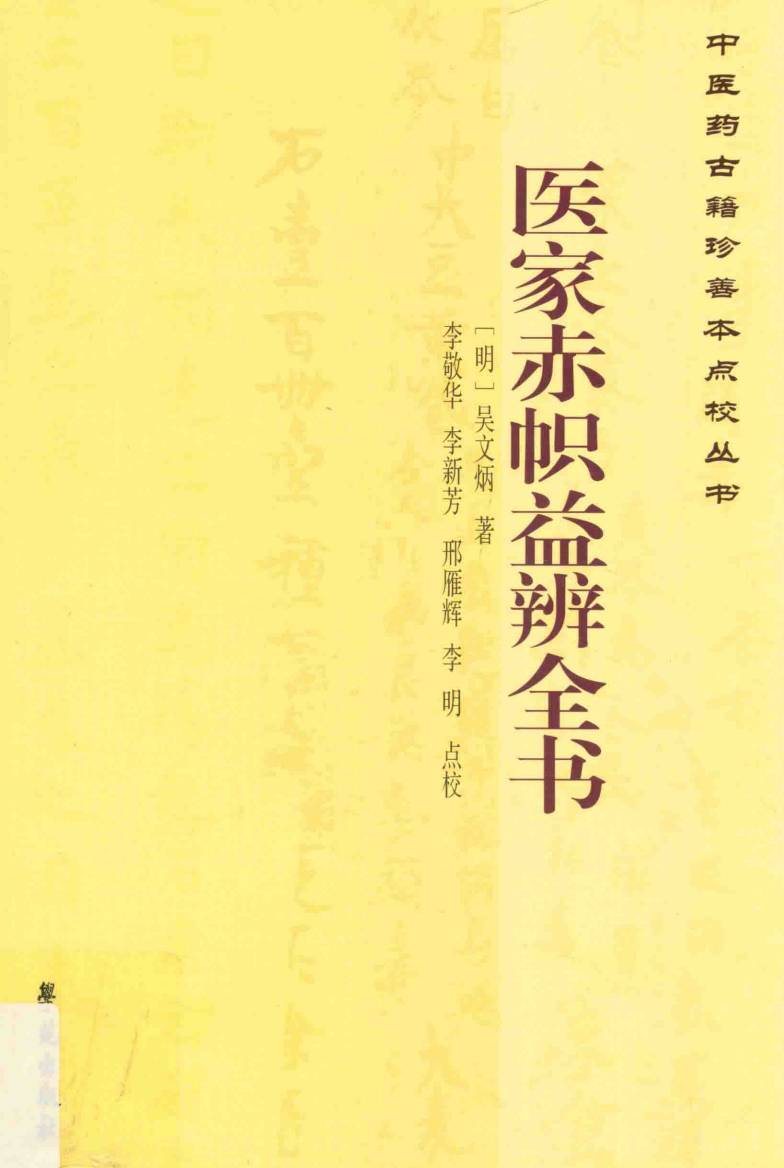 中医药古籍珍善本点校丛书
医家赤帜益辨全书
［明］吴文炳 著
李敬华 李新芳 邢雁辉 李 明 点校
學苑出版社